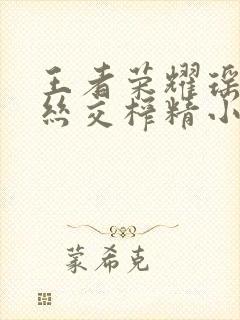 王者荣耀瑶
丝交榨精小
蒙希克